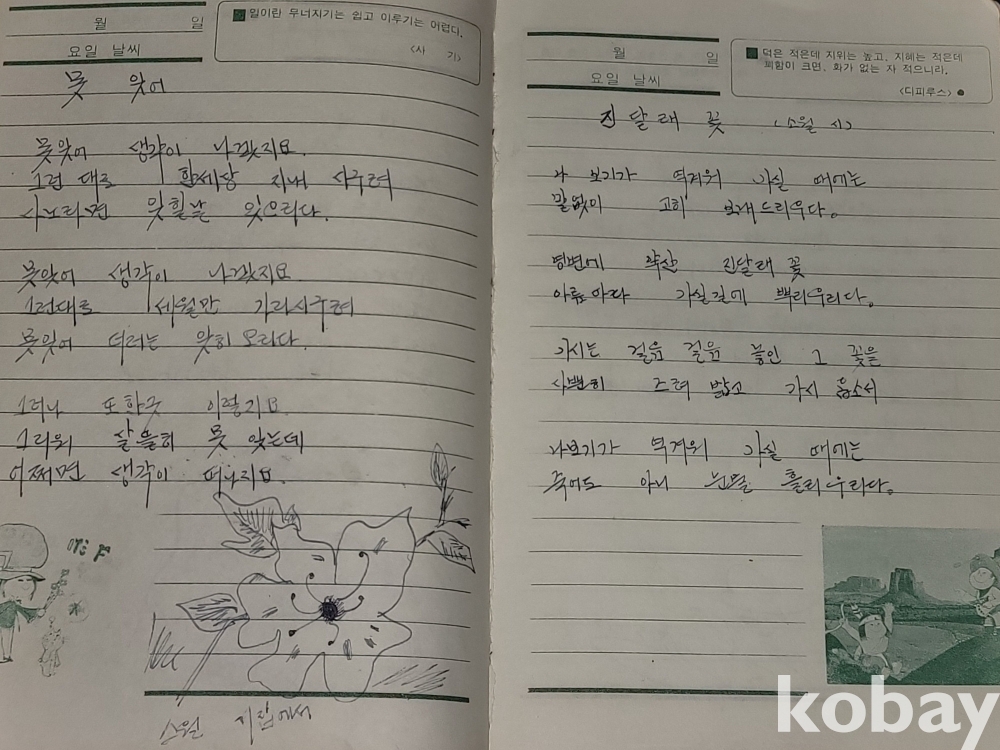 월 일
요일 날씨
일이란 무너지기는 쉽고 이루기는 어렵다.
<사 기>
못 잊어
못잊어 생각이 나겠지요.
그런 대로 한세상 지내 시구려
사노라면 잊힐날 있으리다.
못잊어 생각이 나겠지요
그런대로 세월만 가라시구려
못잊어 더러는 잊히오리다.
그러나 또 한긋 이렇지요
그리워 살뜰히 못 잊는데
어쩌면 생각이 떠나지요.
소월 시집에서
월 일
요일 날씨
덕은 적은데 지위는 높고, 지혜는 적은데
꾀함이 크면, 화가 없는 자 적으니라.
<디피루스>
진달래 꽃 (소월 시)
나 보기가 역겨워 가실 때에는
말없이 고히 보내드리우다.
영변에 약산 진달래 꽃
아름아다 가실길에 뿌리우리다.
가시는 걸음 걸음 놓인 그 꽃을
사뿐히 즈려 밟고 가시 옵소서
나보기가 역겨워 가실 때에는
죽어도 아니 눈물 흘리우리다.
kobay